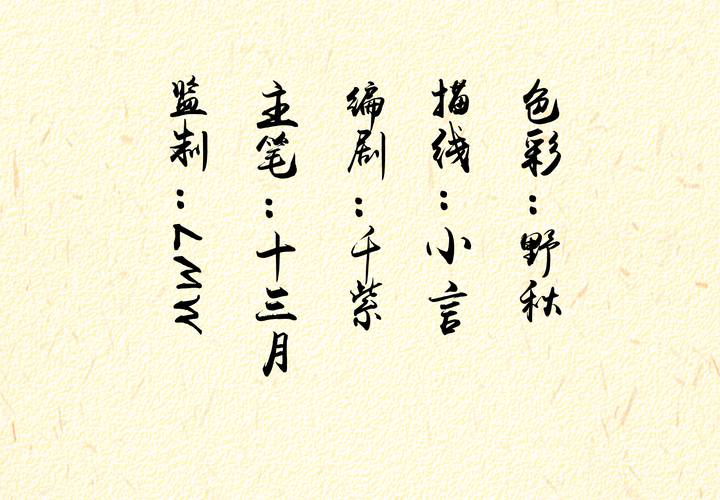 监制：LMW
主笔：十三月
编剧：千紫
描线：小言
色彩：野秋